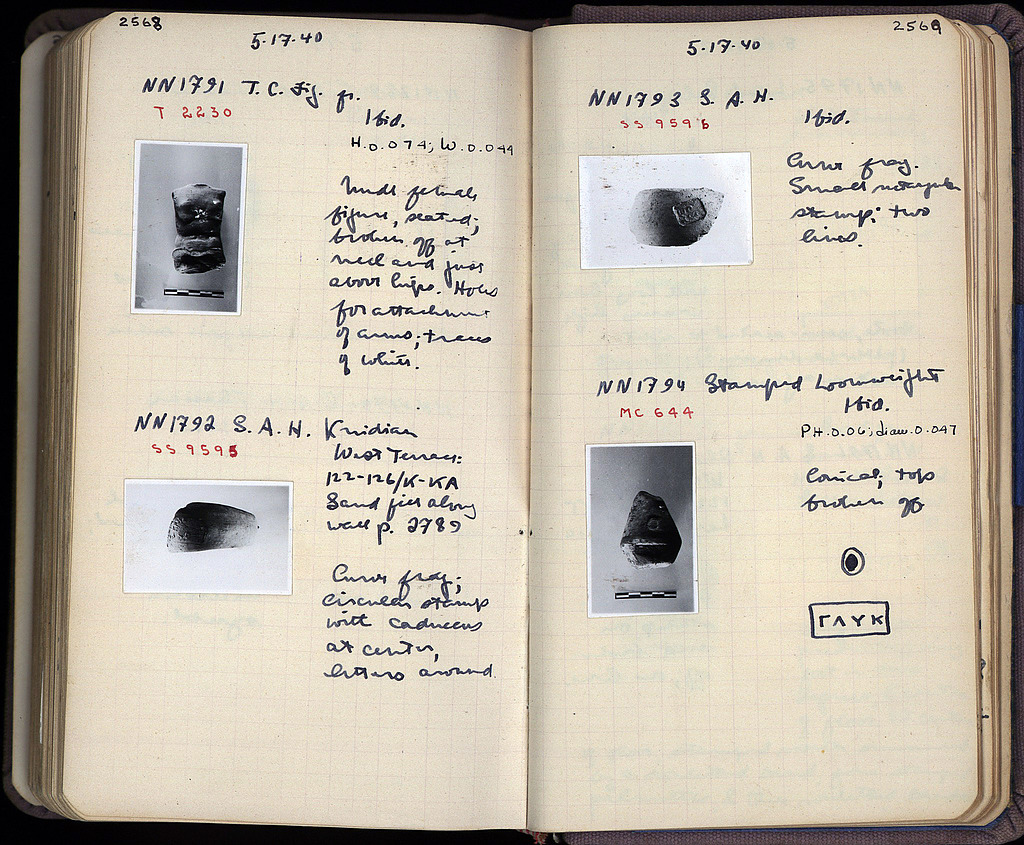 2568
5·17·40
NN1791 T.C. Fig. fr.
T 2230
Ibid.
H.0.074; W.0.044
Nude female
figure, seated;
broken off at
neck and just
above hips. Holes
for attachment
of arms; traces
of white.
NN1792 S.A.H. Knidian
SS 9595
West Terrace:
122-126/K-KA
Sand fill along
wall p. 2789
Curve frag;
circular stamp
with caduceus
at center,
letters around.
2569
5·17·40
NN1793 S.A.H.
SS 9596
Ibid.
Curve frag.
Small rectangular
stamp: two
lines.
NN1794 Stamped Loomweight
MC 644
Ibid.
PH.0.06; diam.0.047
Conical; top
broken off
ΓΛΥΚ